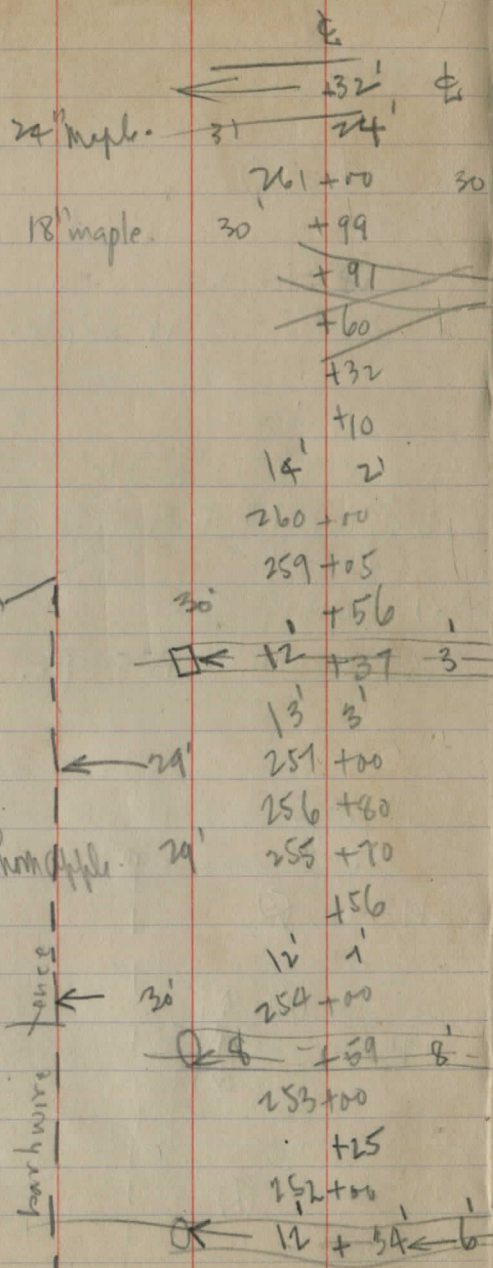 ℄
+32' ℄
24" maple. 31 24'
261+00 30
18" maple. 30' +99
+91
+60
+32
+10
14' 2'
260+00
259+05
30' +56
12' +37 3'
13' 3'
29' 257+00
256+80
apple. 29' 255+70
+56
12' 1'
30' 254+00
8 +59 8'
253+00
+25
252+00
12' + 34' 6'